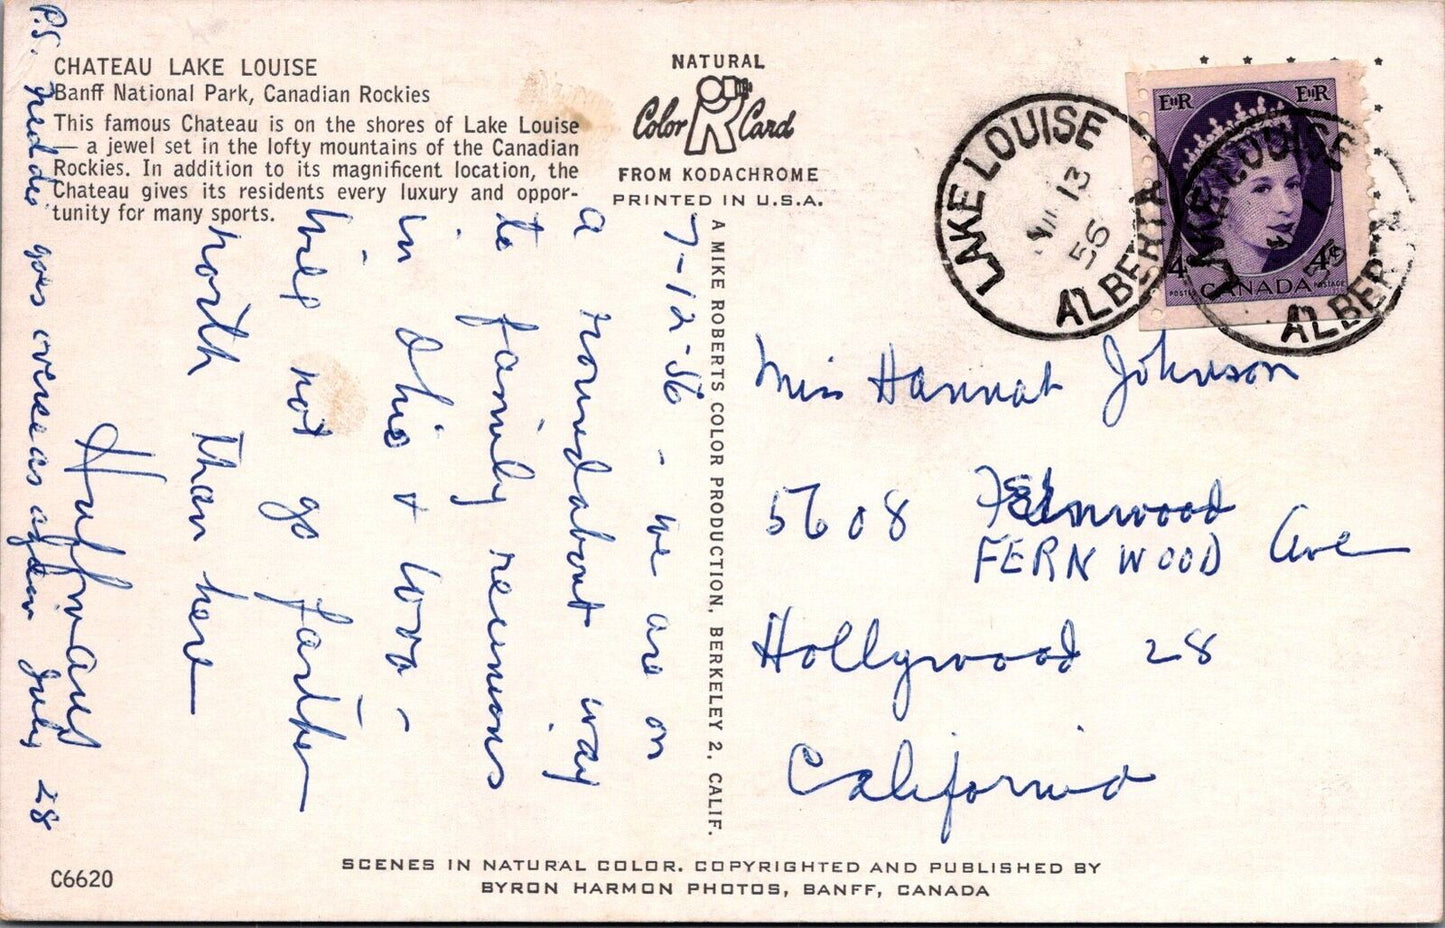 CHATEAU LAKE LOUISE
Banff National Park, Canadian Rockies
This famous Chateau is on the shores of Lake Louise
— a jewel set in the lofty mountains of the Canadian
Rockies. In addition to its magnificent location, the
Chateau gives its residents every luxury and oppor-
tunity for many sports.
NATURAL
Color Card
FROM KODACHROME
PRINTED IN U.S.A.
LAKE LOUISE
13
56
ALBERTA
LAKE LOUISE
ALBERTA
EIIR EIIR
4 4¢
POSTES POSTAGE
CANADA
7-12-56 - we are on
a roundabout way
to family reunions
in Ohio + Iowa -
will not go farther
north than here
P.S. goes overseas again July 28
A MIKE ROBERTS COLOR PRODUCTION, BERKELEY 2, CALIF.
Miss Hannah Johnson
5608 Fernwood
FERNWOOD Ave
Hollywood 28
California
C6620
SCENES IN NATURAL COLOR. COPYRIGHTED AND PUBLISHED BY
BYRON HARMON PHOTOS, BANFF, CANADA